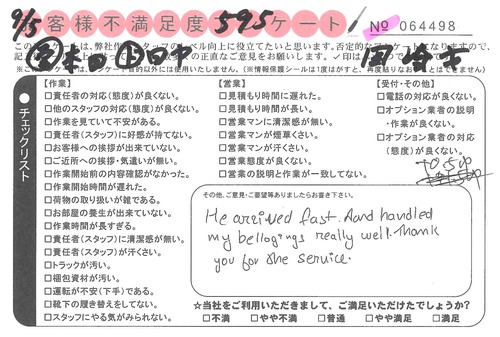 9/5 お客様不満足度アンケート! No 064498
595
このアンケートは、弊社作業スタッフのレベル向上に役立てたいと思います。否定的なアンケートになりますので、
客様の正直なご意見をお願いします。
本日 田中
チェックリスト
【作業】
□責任者の対応(態度)が良くない。
□他のスタッフの対応(態度)が良くない。
□作業を見ていて不安がある。
□責任者(スタッフ)に好感が持てない。
□お客様への挨拶が出来ていない。
□ご近所への挨拶・気遣いが無い。
□作業開始前の内容確認がなかった。
□作業開始時間が遅れた。
□荷物の取り扱いが雑である。
□お部屋の養生が出来ていない。
□作業時間が長すぎる。
□責任者(スタッフ)に清潔感が無い。
□責任者(スタッフ)が汗くさい。
□トラックが汚い。
□梱包資材が汚い。
□運転が不安(下手)である。
□靴下の履き替えをしてない。
□スタッフにやる気がみられない。
【営業】
□見積もり時間に遅れた。
□見積もり時間が長い。
□営業マンに清潔感が無い。
□営業マンが煙草くさい。
□営業マンが汗くさい。
□営業態度が良くない。
□営業の説明と作業が一致してない。
【受付・その他】
□電話の対応が良くない。
□オプション業者の説明
・作業が良くない。
□オプション業者の対応
(態度)が良くない。
その他、ご意見・ご要望等ありましたらお書き下さい。
He arrived fast. And handled
my bellogings really well. Thank
you for the service.
☆当社をご利用いただきまして、ご満足いただけたでしょうか?
□不満 □やや不満 □普通 □やや満足 □満足